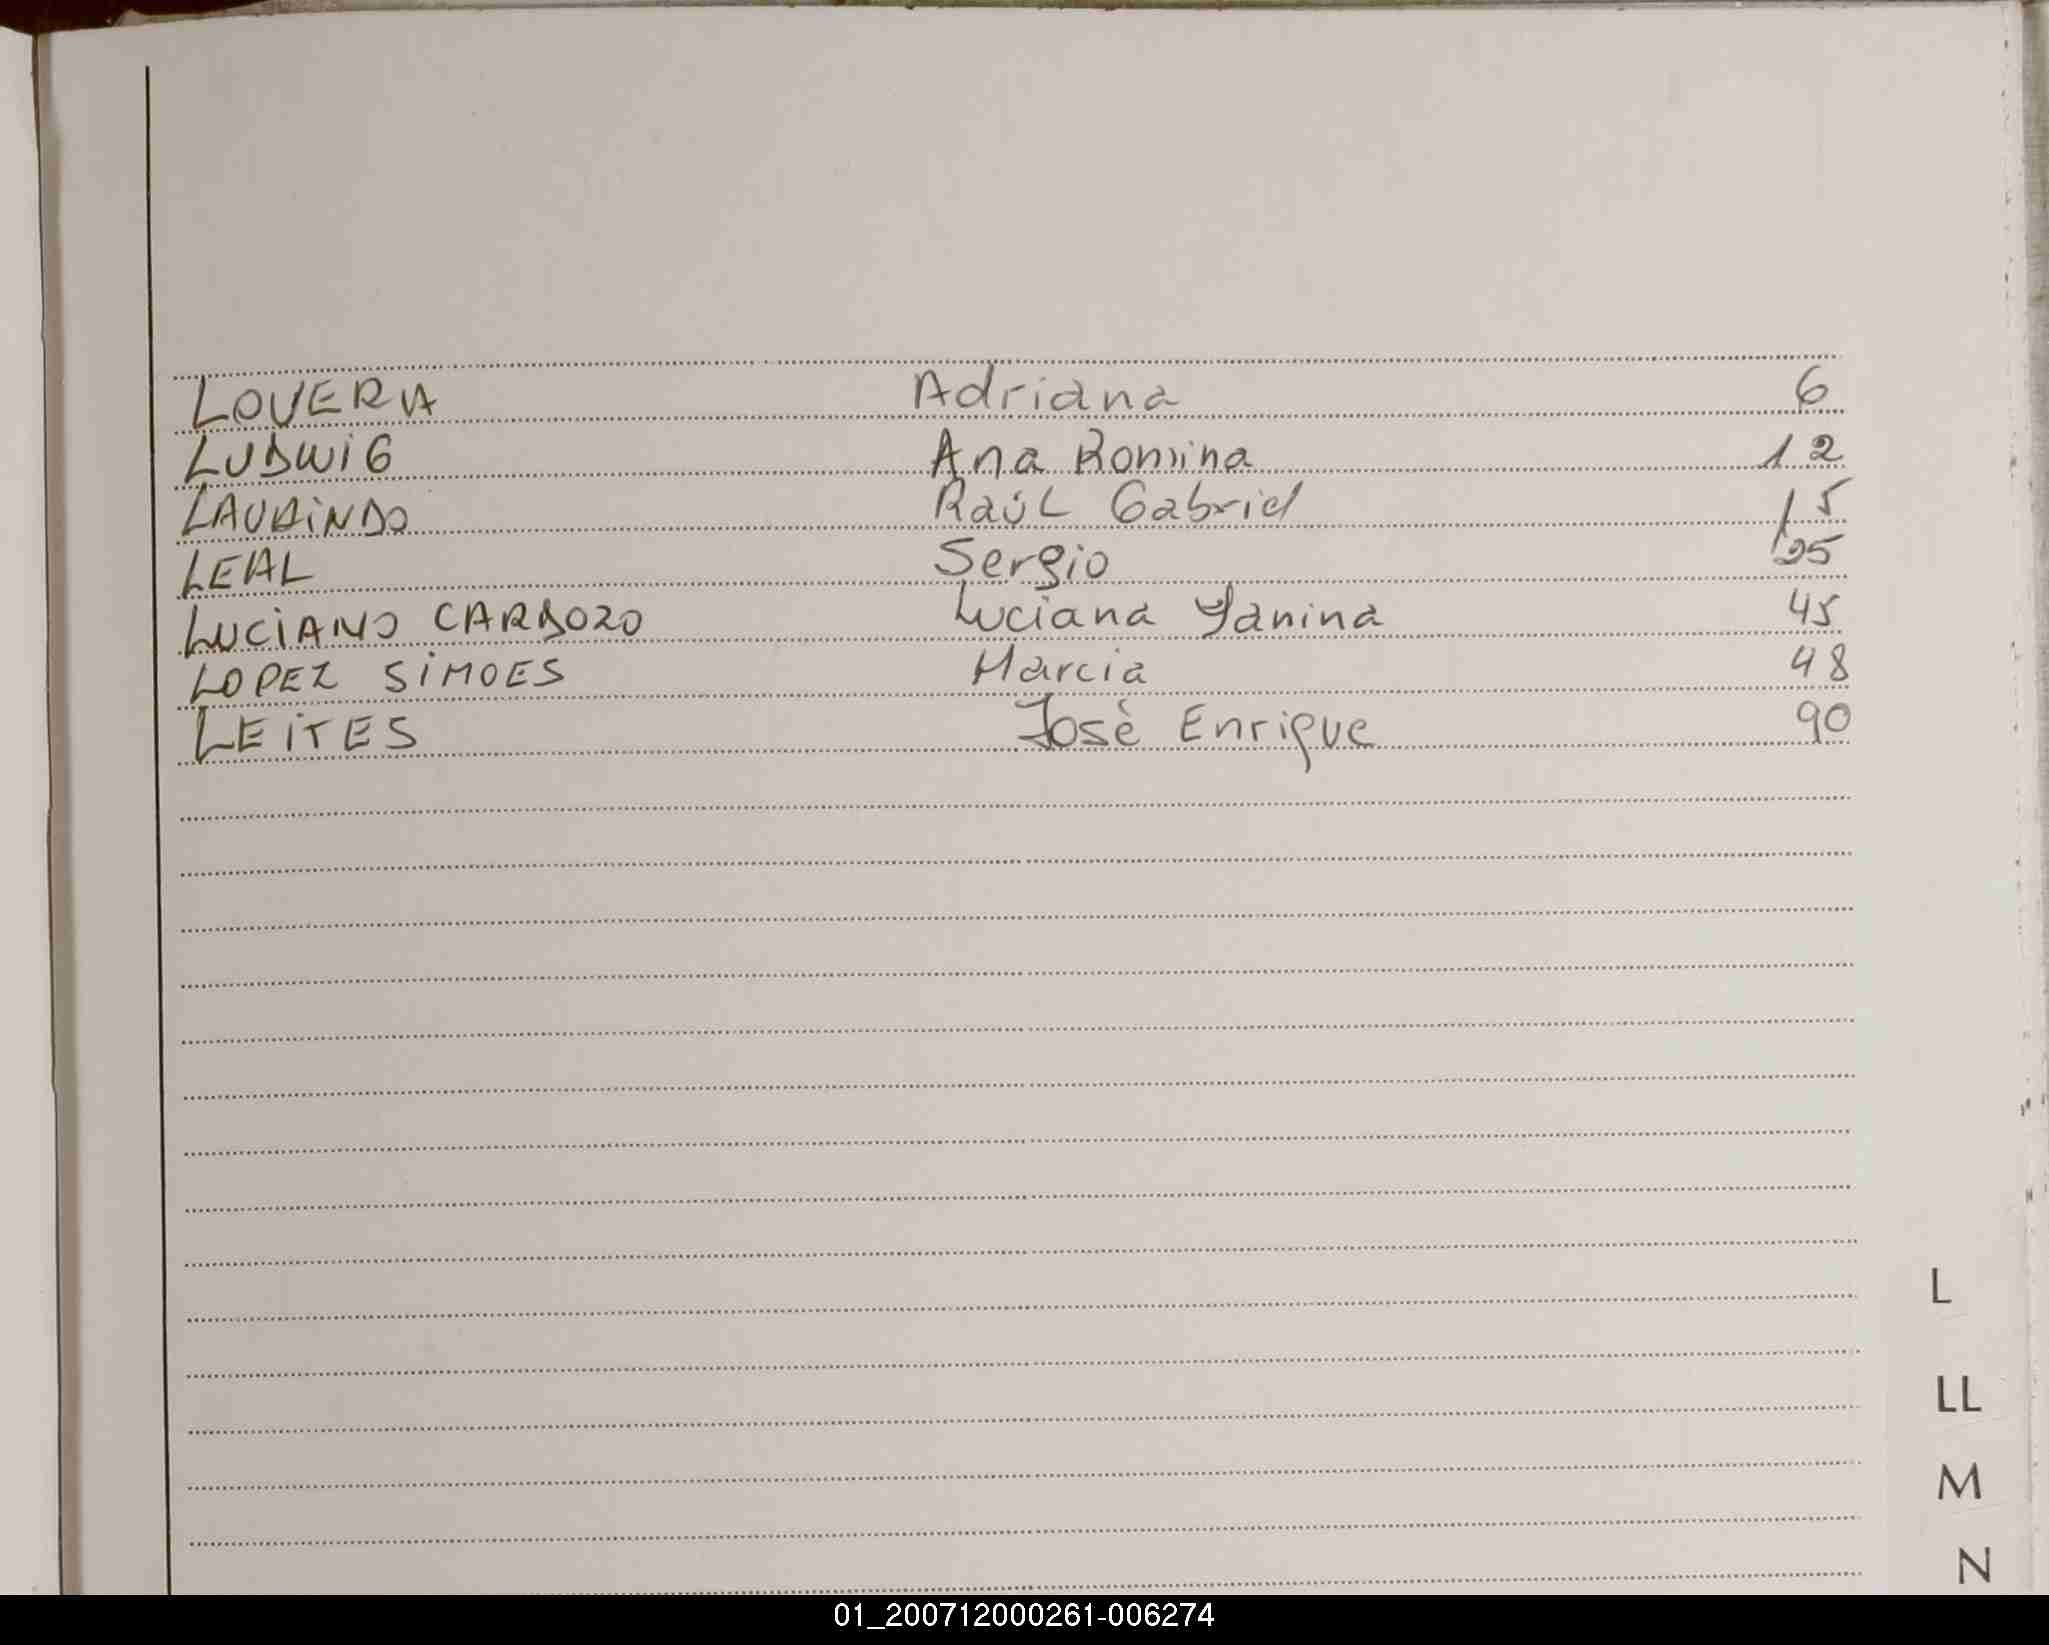 LOVERA Adriana 6
LUDWIG Ana Romina 12
LAURINDO Raúl Gabriel 15
LEAL Sergio 25
LUCIANO CARDOZO Luciana Yanina 45
LOPEZ SIMOES Marcia 48
LEITES José Enrique 90
L
LL
M
N
01_200712000261-006274